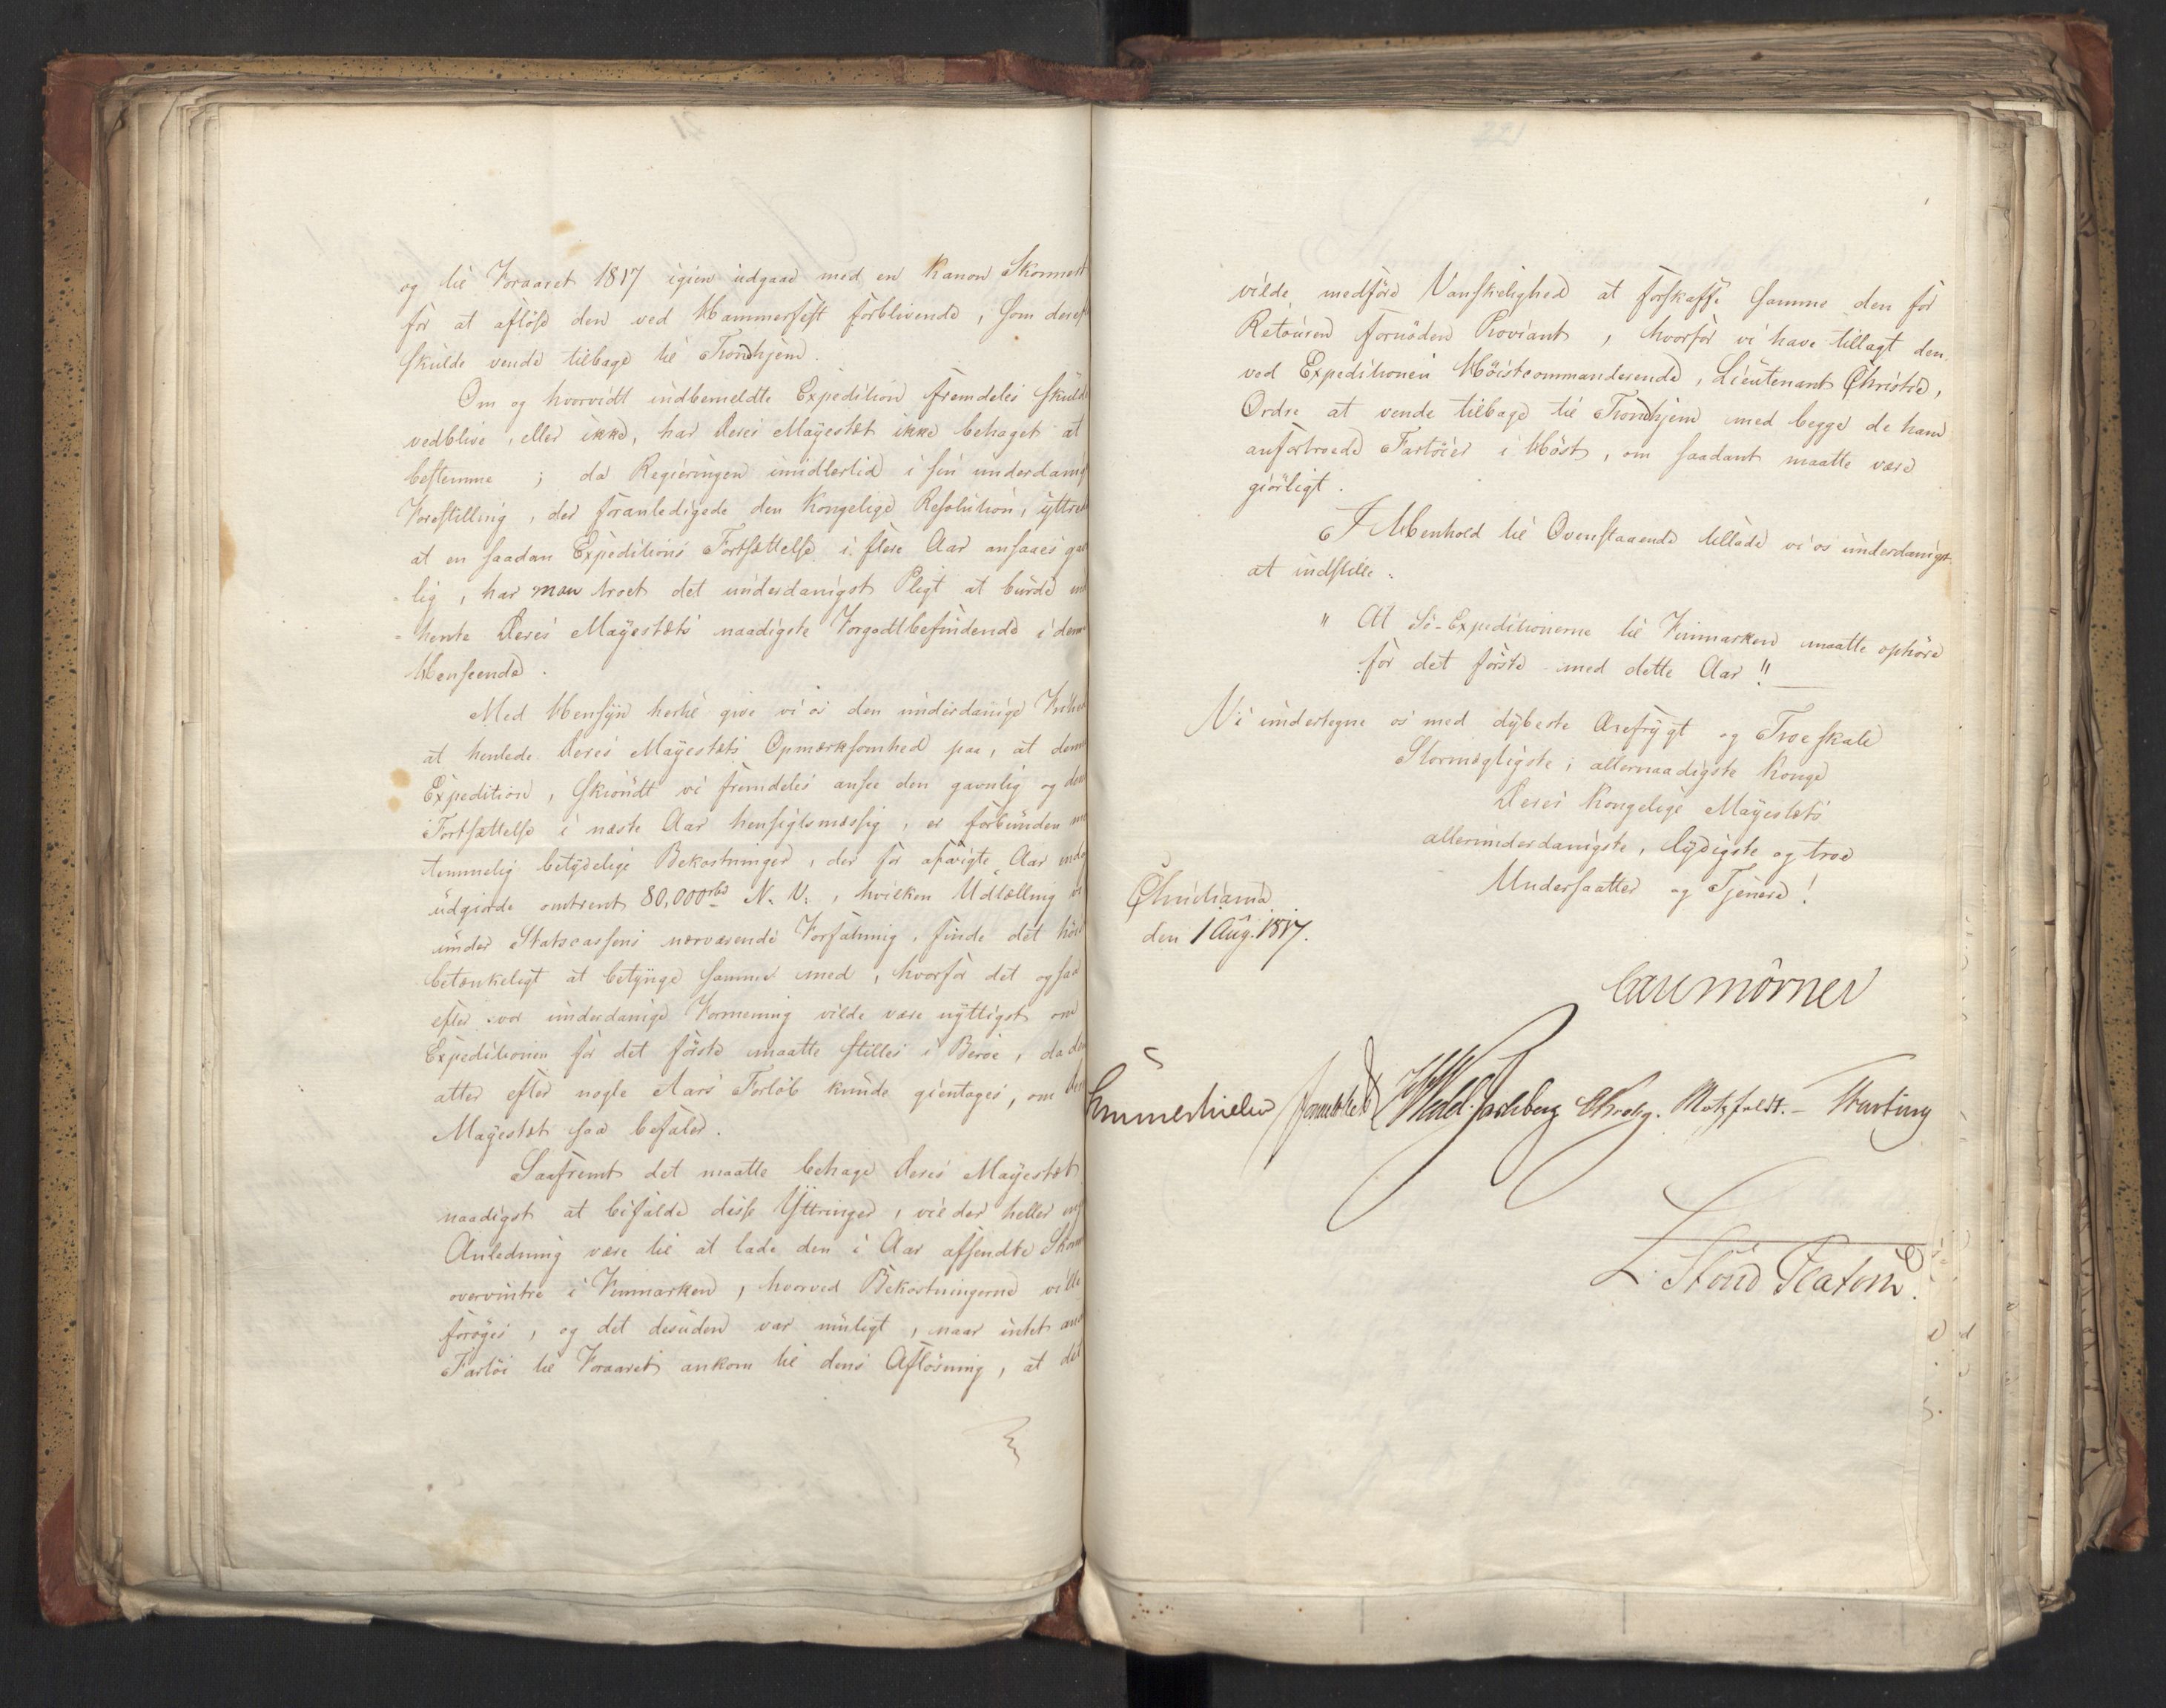 og til Foraaret 1817 igien udgaae med en Kanon Skonnert
for at afløse den ved Hammerfest forblivende, som dereft
skulde vende tilbage til Trondhjem.
Om og hvorvidt indbemeldte Expedition fremdeles skulde
vedblive, eller ikke, har Deres Mayestæt ikke behaget at
bestemme; da Regieringen imidlertid i sin underdanig
Forestilling, der foranledigede den Kongelige Resolution, yttred
at en saadan Expeditions Fortsættelse i flere Aar ansaaes gav
lig, har man troet det underdanigst Pligt at burde ind
hente Deres Mayestæts naadigste Forgodtbefindende i denne
Henseende.
Med Hensyn hertil give vi os den underdanige Frihed
at henlede Deres Mayestæts Opmærksomhed paa, at denne
Expedition, skiøndt vi fremdeles ansee den gavnlig og dens
Fortsættelse i næste Aar hensigtsmæssig, er forbunden med
temmelig betydelige Bekostninger, der for afvigte Aar endog
udgiorde omtrent 80,000 rbd N. V., hvilken Udtælling vi
under Statscassens nærværende Forfatning, finde det høist
betænkeligt at betynge samme med, hvorfor det ogsaa
efter vor underdanige Formening vilde være nyttigst om
Expeditionen for det første maatte stilles i Beroe, da den
atter efter nogle Aars Forløb kunde gientages, om Deres
Mayestæt saa befaler.
Saafremt det maatte behage Deres Mayestæt
naadigst at bifalde disse Yttringer, vil der heller ing
Anledning være til at lade den i Aar afsendte Skonn
overvintre i Finmarken, hvorved Bekostningerne vilde
forøges, og det desuden var muligt, naar intet and
Fartøi til Foraaret ankom til dens Afløsning, at det
vilde medføre Vanskelighed at forskaffe samme den for
Retouren fornøden Proviant, hvorfor vi have tillagt den
ved Expeditionen Høistcommanderende, Lieutenant Christie,
Ordre at vende tilbage til Trondhjem med begge de ham
anfortroede Fartøier i Høst, om saadant maatte være
giørligt.
I Henhold til Ovenstaaende tillade vi os underdanigst
at indstille:
" At Sø-Expeditionerne til Finmarken maatte ophøre
for det første med dette Aar "
Vi undertegne os med dybeste Ærefrygt og Troeskab
Stormægtigste, allernaadigste Konge
Deres Kongelige Mayestæts
allerunderdanigste, lydigste og troe
Undersaatter og Tjenere!
Christiania
den 1 Aug. 1817.
Carl Mörner
Sommerhielm HWedel Jarlsberg CKrohg. Motzfeldt. – Hartung
L. Stoud Platou.